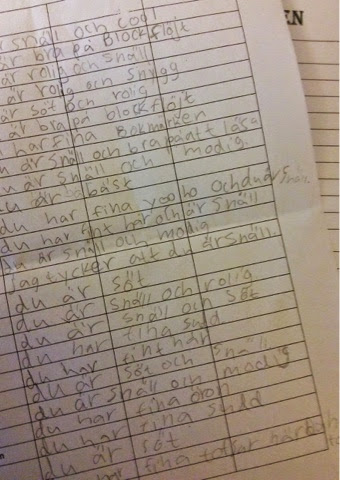 är snäll och cool
är bra på Blockfløjt
är rolig än snäll
är rolig och snygg
är söt och rolig
är bra på blockfløjt
har fina Bokmärken
u är snäll och bra påatt läsa
du är snäll och modig.
du är bäst
du har fina yooho ochduärsnäll
du har fint hår och är snäll
du är snäll och modig
Jag tycker att du ärsnäll.
du är söt
du är snäll och rolig
du är snäll och söt
du har fina sudd
du har fint hår
du är söt och snäll
du är snäll och modig
du har fina öron
du har fina sudd
du är söt
har fina tofsar
EN